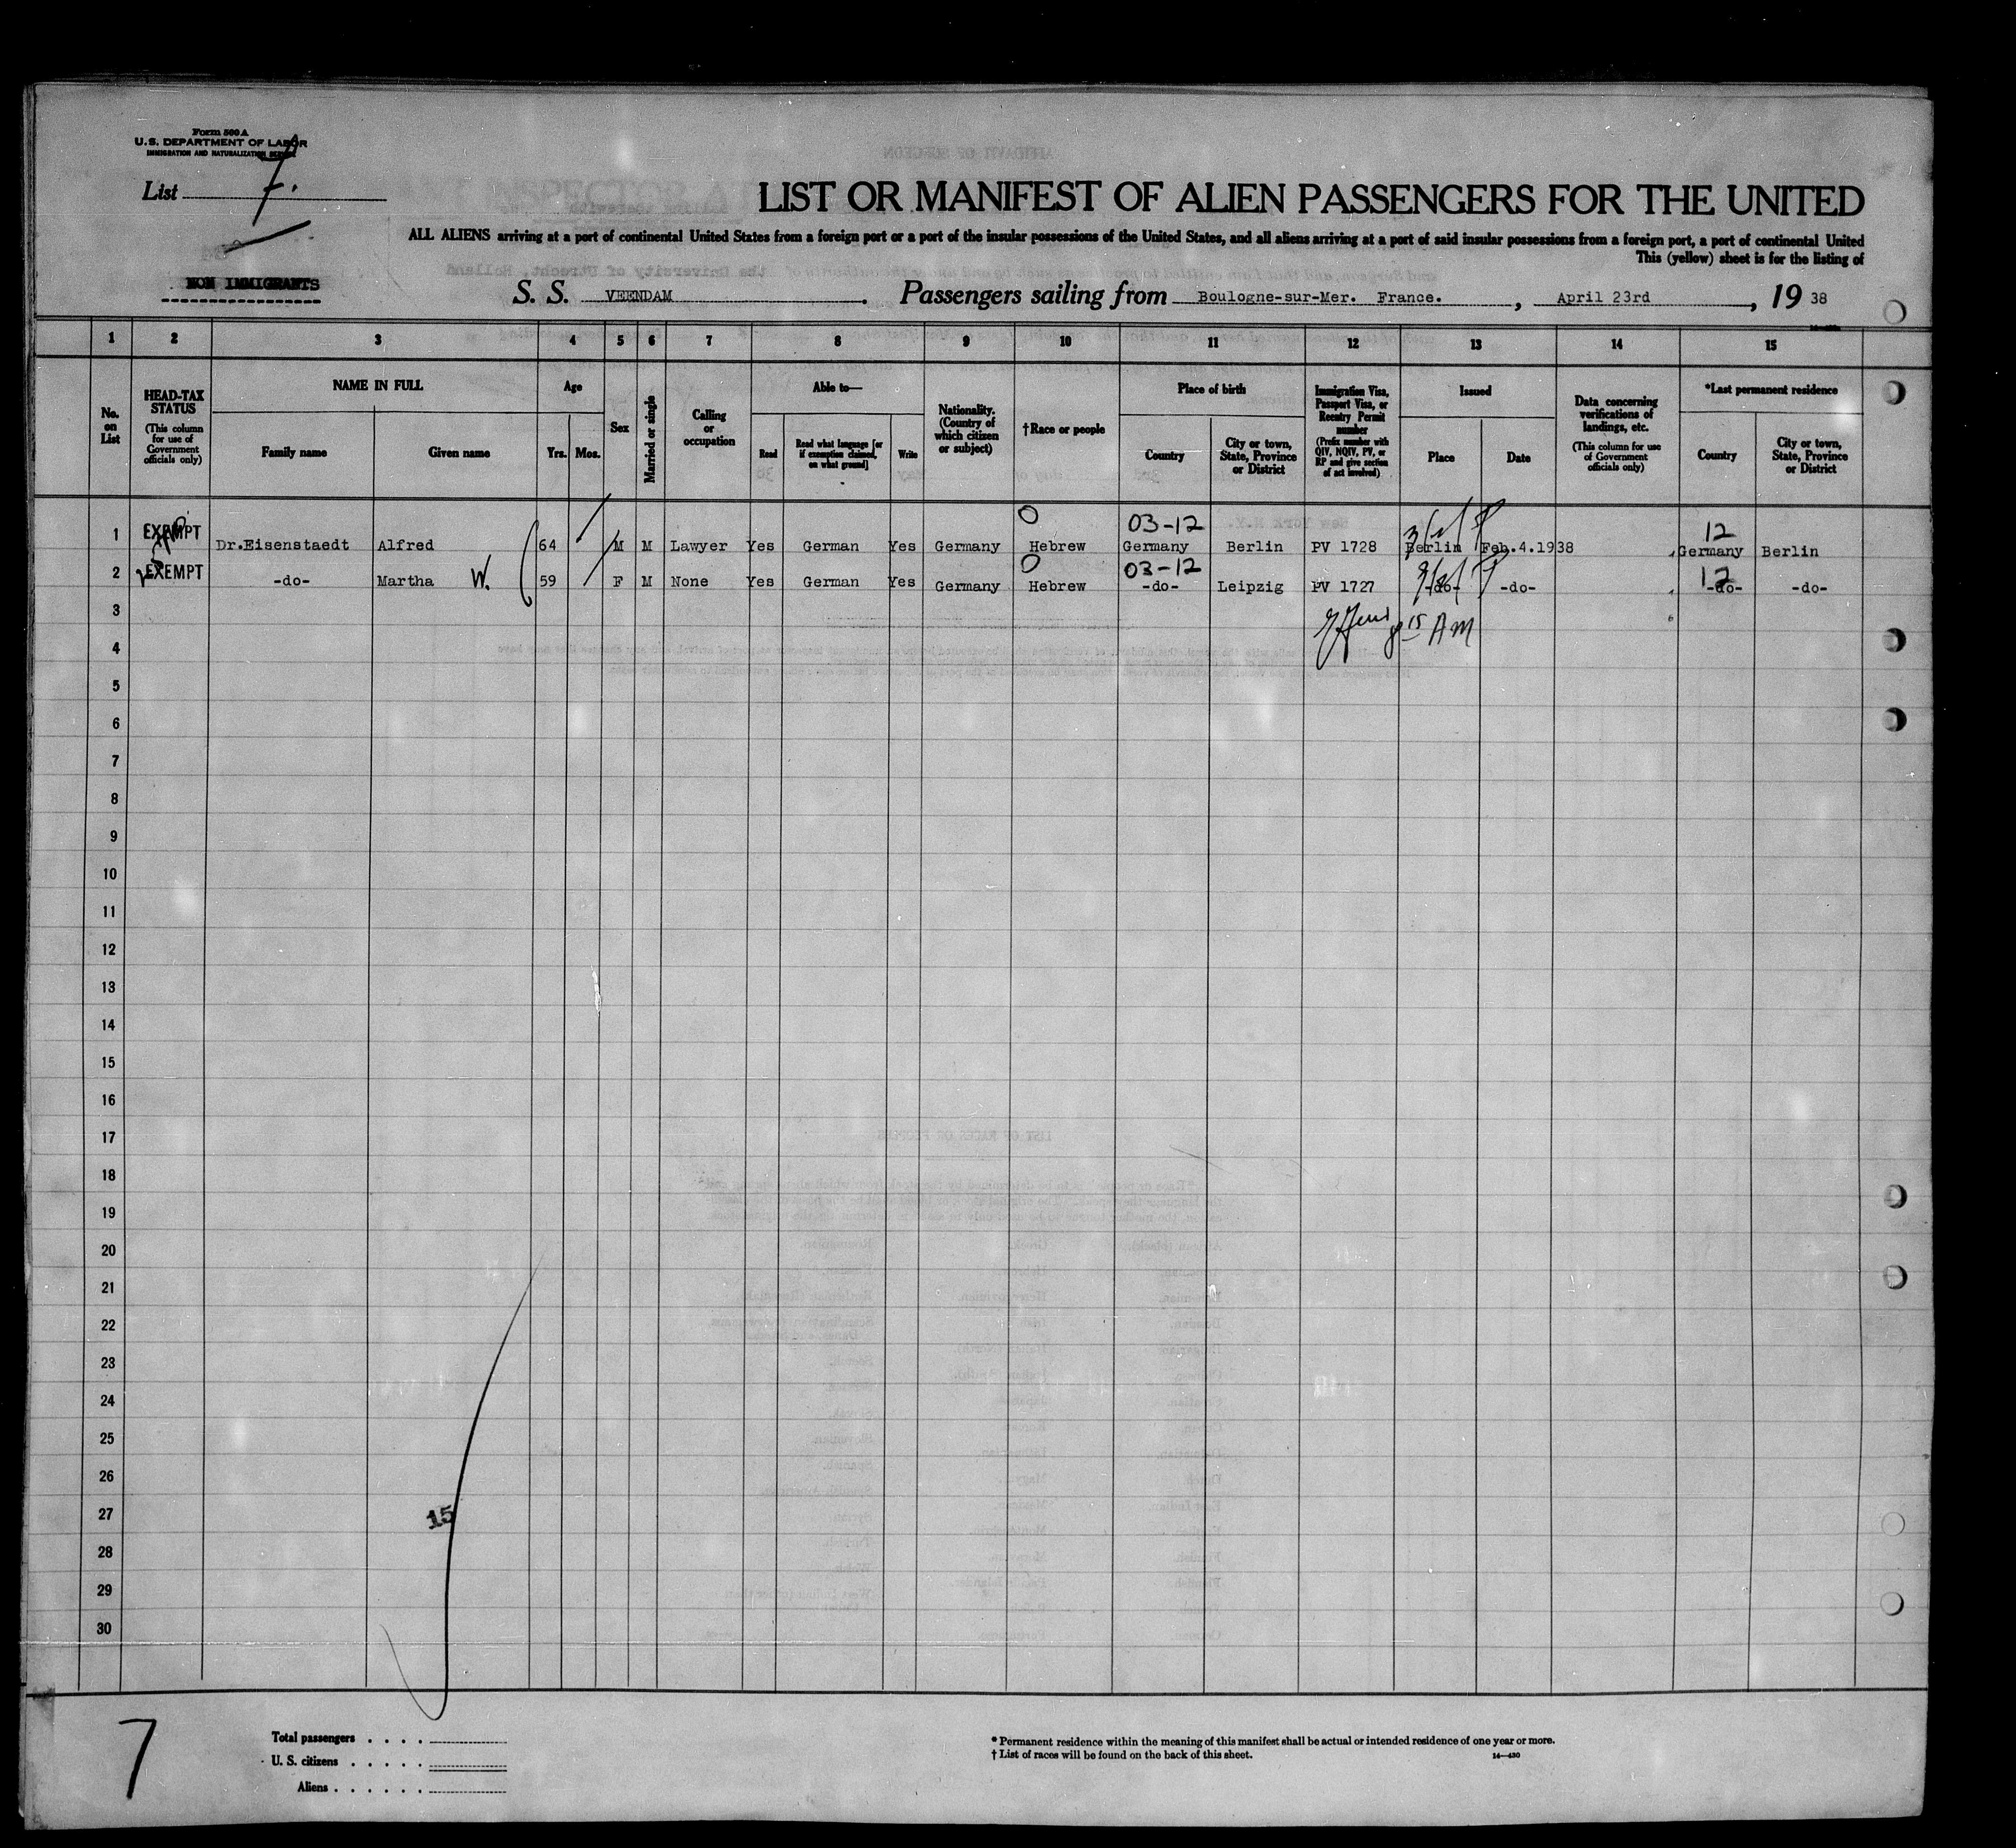 Form 500 A
U.S. DEPARTMENT OF LABOR
IMMIGRATION AND NATURALIZATION SERVICE
List 7.
LIST OR MANIFEST OF ALIEN PASSENGERS FOR THE UNITED
ALL ALIENS arriving at a port of continental United States from a foreign port or a port of the insular possessions of the United States, and all aliens arriving at a port of said insular possessions from a foreign port, a port of continental United
This (yellow) sheet is for the listing of
NON IMMIGRANTS
S. S. VEENDAM. Passengers sailing from Boulogne-sur-Mer. France. , April 23rd , 19 38
1 2 3 4 5 6 7 8 9 10 11 12 13 14 15
No. on List
HEAD-TAX STATUS
(This column for use of Government officials only)
NAME IN FULL
Family name Given name
Age
Yrs. Mos.
Sex
Married or single
Calling or occupation
Able to—
Read Read what language [or if exemption claimed, on what ground] Write
Nationality. (Country of which citizen or subject)
†Race or people
Place of birth
Country City or town, State, Province or District
Immigration Visa, Passport Visa, or Reentry Permit number
(Prefix number with QIV, NQIV, PV, or RP and give section of act involved)
Issued
Place Date
Data concerning verifications of landings, etc.
(This column for use of Government officials only)
*Last permanent residence
Country City or town, State, Province or District
0 03-12 12
1 EXEMPT Dr.Eisenstaedt Alfred 64 M M Lawyer Yes German Yes Germany Hebrew Germany Berlin PV 1728 Berlin Feb.4.1938 Germany Berlin
0 03-12 12
2 EXEMPT -do- Martha W. 59 F M None Yes German Yes Germany Hebrew -do- Leipzig PV 1727 -do- -do- -do- -do-
3
8 15 AM
4
5
6
7
8
9
10
11
12
13
14
15
16
17
18
19
20
21
22
23
24
25
26
27
15
28
29
30
7
Total passengers . . . .
U. S. citizens . . . . .
Aliens . . . . . .
* Permanent residence within the meaning of this manifest shall be actual or intended residence of one year or more.
† List of races will be found on the back of this sheet.
14—430